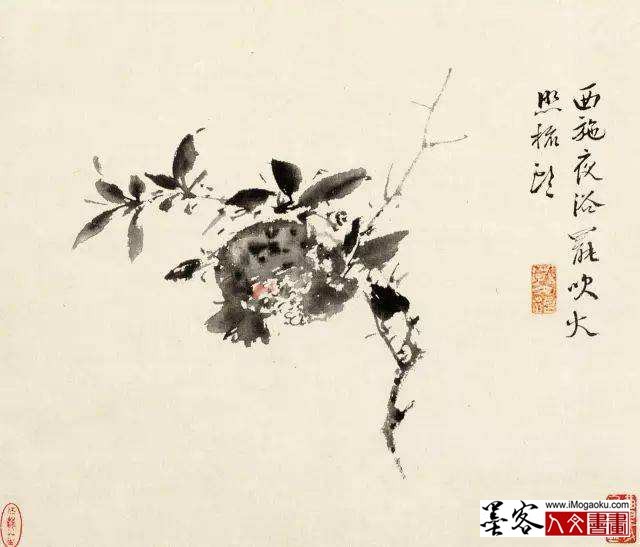 西施夜浴罷吹火
照梳頭
墨客
www.iMogaoku.com
人文書畫